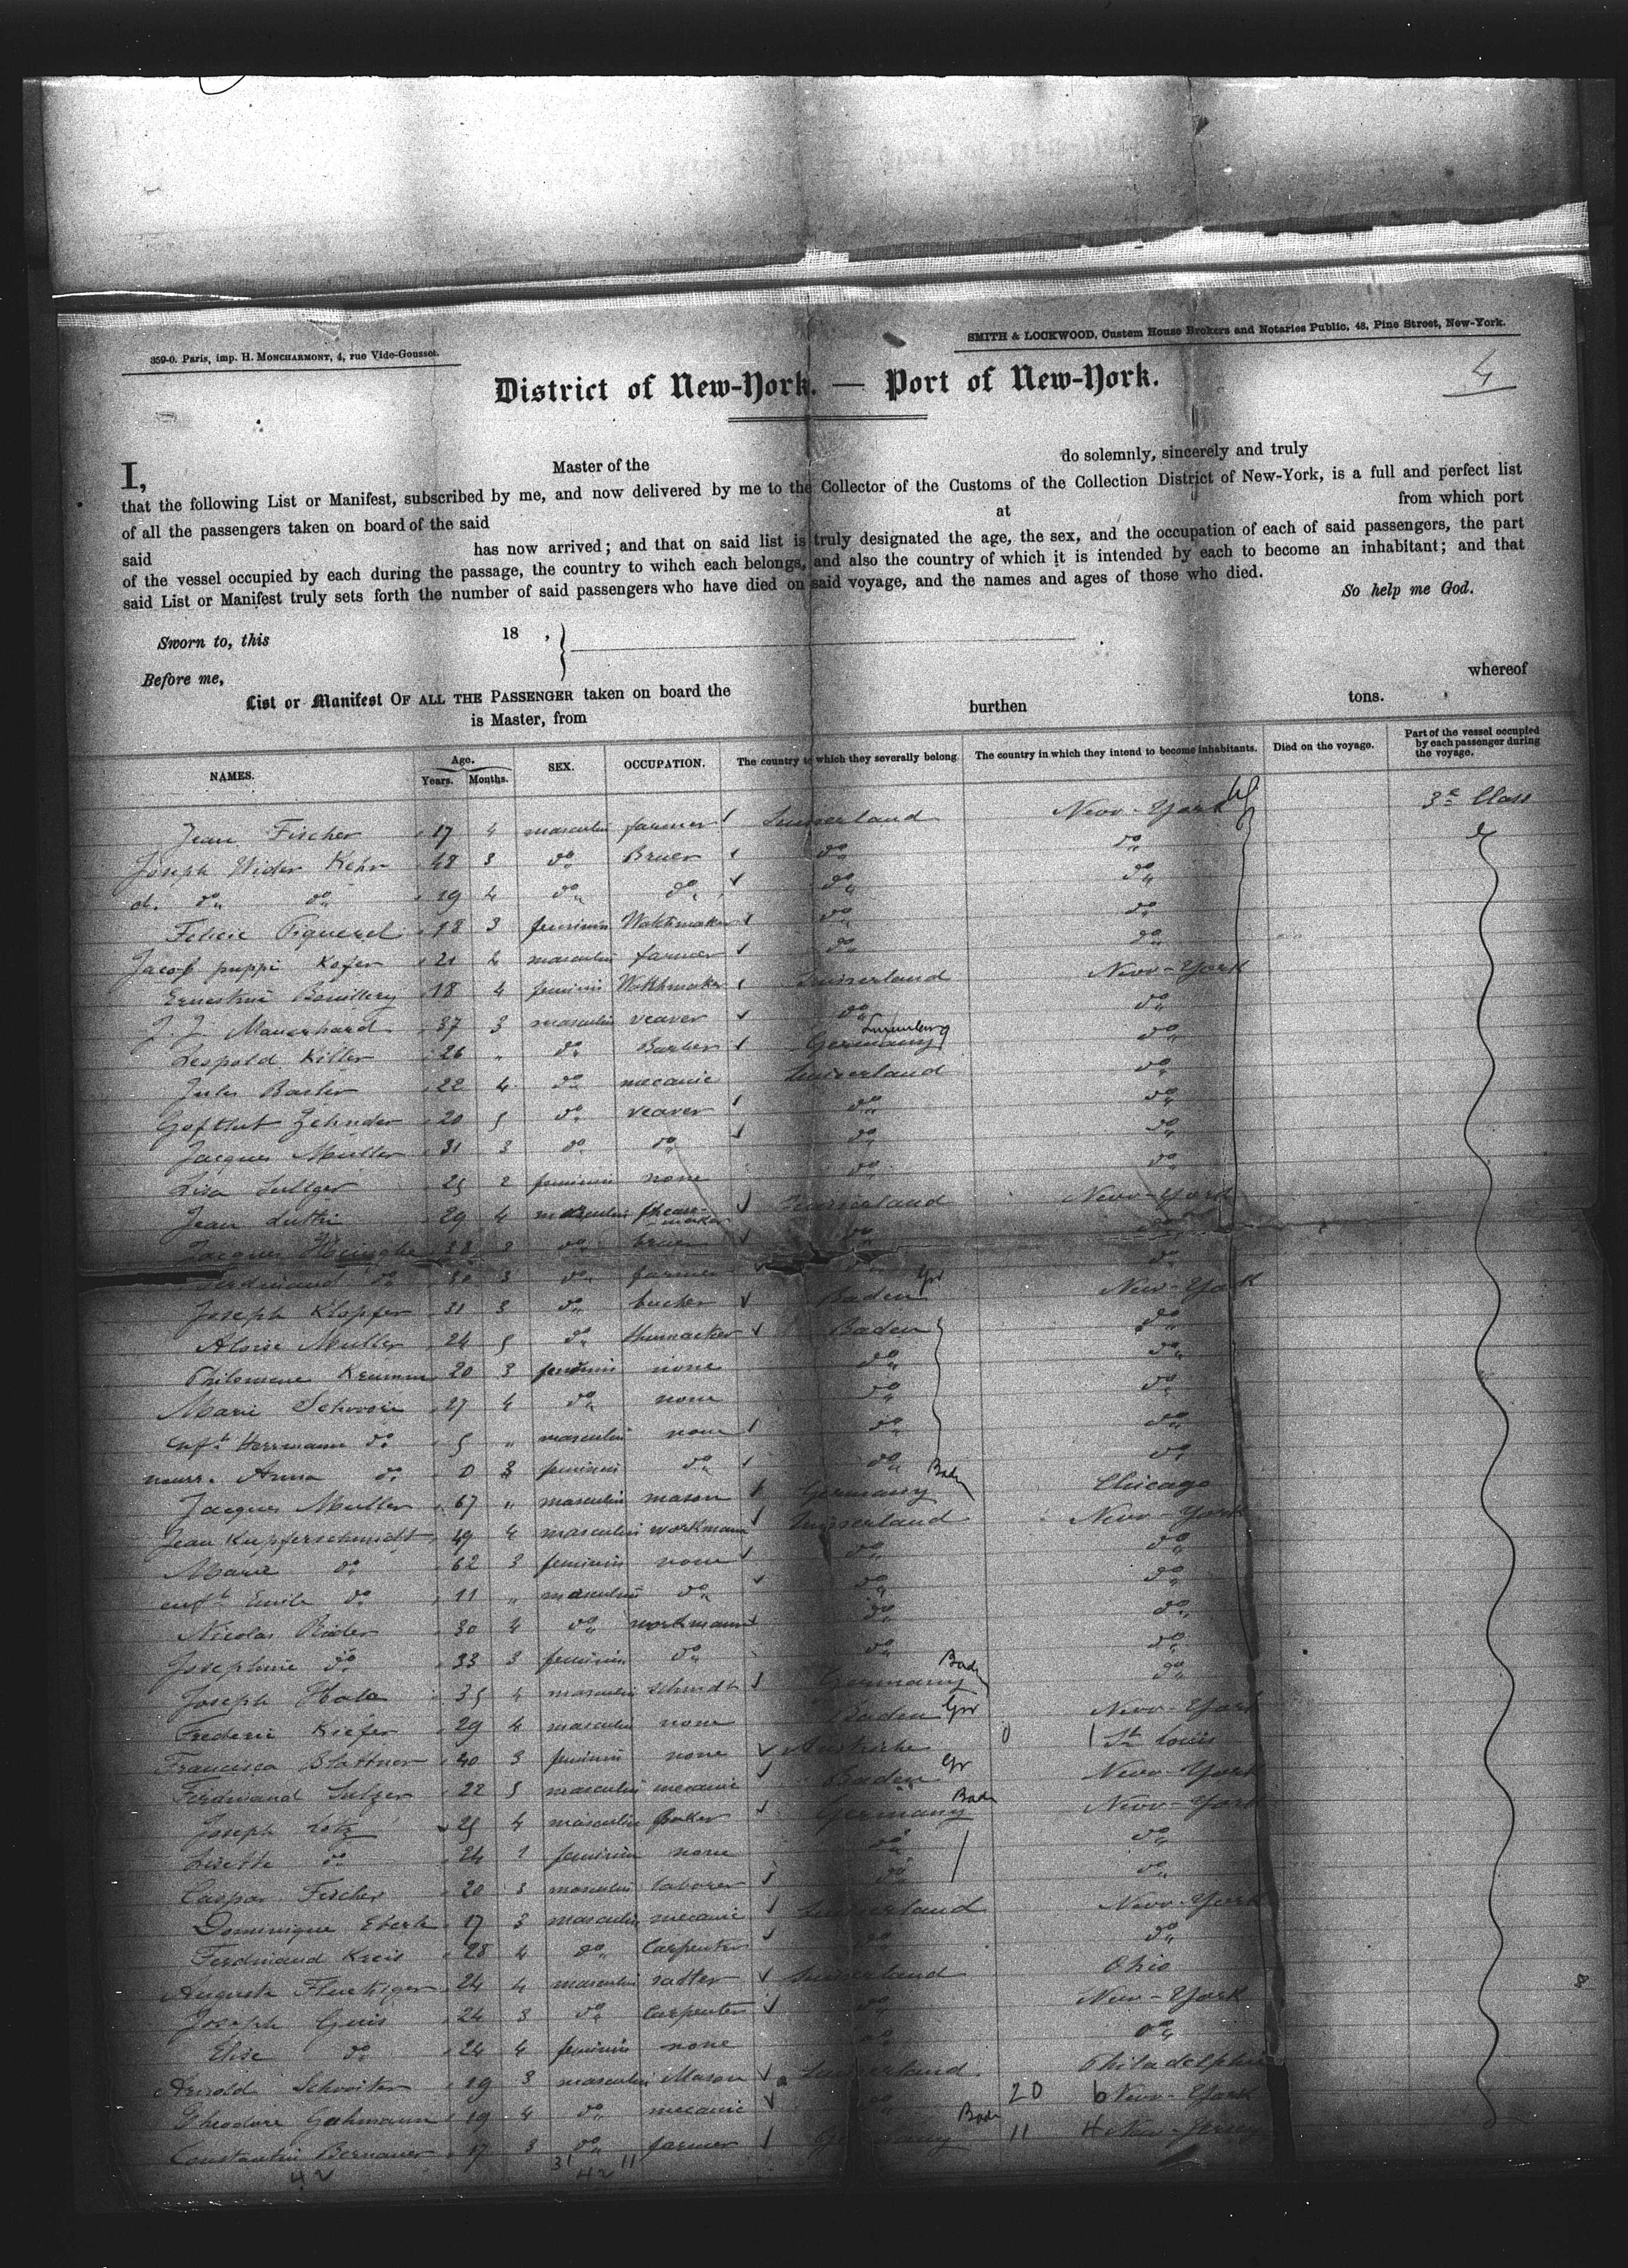 359-0. Paris, imp. H. MONCHARMONT, 4, rue Vide-Gousset.
SMITH & LOCKWOOD, Custem House Brokers and Notaries Public, 48, Pine Street, New-York.
4
District of New-York. — Port of New-York.
I, Master of the do solemnly, sincerely and truly
that the following List or Manifest, subscribed by me, and now delivered by me to the Collector of the Customs of the Collection District of New-York, is a full and perfect list
of all the passengers taken on board of the said at from which port
said has now arrived; and that on said list is truly designated the age, the sex, and the occupation of each of said passengers, the part
of the vessel occupied by each during the passage, the country to wihch each belongs, and also the country of which it is intended by each to become an inhabitant; and that
said List or Manifest truly sets forth the number of said passengers who have died on said voyage, and the names and ages of those who died.
So help me God.
Sworn to, this 18 ,
Before me,
List or Manifest OF ALL THE PASSENGER taken on board the burthen tons. whereof
is Master, from
NAMES. Age. Years. Months. SEX. OCCUPATION. The country to which they severally belong. The country in which they intend to become inhabitants. Died on the voyage. Part of the vessel occupied by each passenger during the voyage.
Jean Fischer 17 4 masculin farmer Switzerland New-York 3e Class
Joseph Wider Kehr 48 3 do Bruer do do
d. do do 19 4 do do do do
Felicie 18 3 feminin Wathmaker do do
Jacob puppi Kofer 21 2 masculin farmer do do
Ernestine Bouillery 18 4 feminin Wathmaker New-York
J. J. Mauerhard 37 3 masculin veaver do do
Leopold Killer 26 " do Barber Germany Luxemburg do
Jules Basler 22 4 do mecanic do
Gofthut Zehnder 20 5 do veaver do do
Jacques Muller 31 3 do do do do
Lisa 25 2 feminin none do do
Jean Luthi 29 4 masculin New-York
Jacques 38 do bruer do do
Ferdinand do 30 3 do farmer do
Joseph Klopfer 31 3 do bucher Baden Gr New-York
Aloise Muller 24 5 do Baden do
Philomene Krumm 20 3 feminin none do do
Marie 27 4 do none do do
enft Herrmann do 5 " masculin none do do
nourr. Anna do 0 3 feminin do do do
Jacques Muller 67 " masculin mason Germany Baden Chicago
Jean Kupferschmidt 49 4 masculin workmann New-York
Marie do 62 3 feminin none do do
enft Emile do 11 " masculin do do do
Nicolas Rieder 30 4 do workmann do do
Josephine do 33 3 feminin do do do
Joseph 35 4 masculin schmidt Germany Baden do
Frederic Kiefer 29 4 masculin none Baden Gr New-York
Francisca Blattner 40 3 feminin none Autriche 0 1 St Louis
Ferdinand Sulzer 22 5 masculin mecanic Baden Gr New-York
Joseph Lotz 25 4 masculin Baker Germany Baden New-York
Lisette do 24 1 feminin none do do
Caspar Fischer 20 3 masculin laborer do do
Dominique Eberle 17 3 masculin mecanic New-York
Ferdinand Kreis 28 4 do Carpenter do
Auguste Fluckiger 24 4 masculin satler Ohio
Joseph 24 3 do Carpenter do New-York
Elise do 24 4 feminin none do
Arnold 19 3 masculin Mason Philadelphie
Theodore Gahmann 19 4 do mecanic 20 6 New-York
Constantin Bernauer 17 3 do farmer Germany Baden 11 4 New-Jersey
42 31 11
42